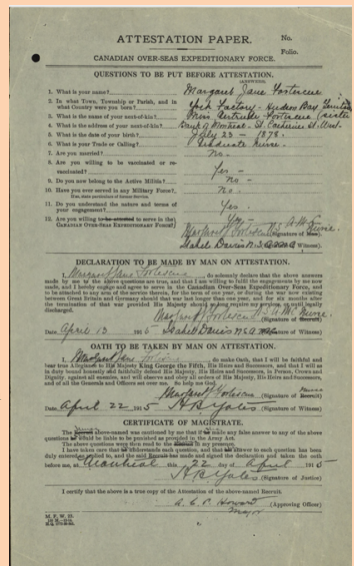 ATTESTATION PAPER.
No.
Folio.
CANADIAN OVER-SEAS EXPEDITIONARY FORCE.
QUESTIONS TO BE PUT BEFORE ATTESTATION.
(ANSWERS).
1. What is your name? Margaret Jane Fortescue
2. In what Town, Township or Parish, and in
what Country were you born? York Factory - Hudson Bay
3. What is the name of your next-of-kin? Miss Gertrude Fortescue (sister
4. What is the address of your next-of-kin? Bank of Montreal - St. Catherine St. West.
5. What is the date of your birth? July 23 - 1878.
6. What is your Trade or Calling? Graduate Nurse.
7. Are you married? No -
8. Are you willing to be vaccinated or re-
vaccinated? Yes -
9. Do you now belong to the Active Militia? No -
10. Have you ever served in any Military Force? No.
11. Do you understand the nature and terms of
your engagement? Yes.
12. Are you willing to be attested to serve in the
CANADIAN OVER-SEAS EXPEDITIONARY FORCE? Yes -
Margaret Fortescue (Signature of Man).
Isabel Davies (Signature of Witness).
DECLARATION TO BE MADE BY MAN ON ATTESTATION.
I, Margaret Jane Fortescue, do solemnly declare that the above answers
made by me to the above questions are true, and that I am willing to fulfil the engagements by me now
made, and I hereby engage and agree to serve in the Canadian Over-Seas Expeditionary Force, and
to be attached to any arm of the service therein, for the term of one year, or during the war now existing
between Great Britain and Germany should that war last longer than one year, and for six months after
the termination of that war provided His Majesty should so long require my services, or until legally
discharged.
Margaret Fortescue (Signature of Recruit)
Date April 13 1915 Isabel Davies (Signature of Witness)
OATH TO BE TAKEN BY MAN ON ATTESTATION.
I, Margaret Jane Fortescue, do make Oath, that I will be faithful and
bear true Allegiance to His Majesty King George the Fifth, His Heirs and Successors, and that I will as
in duty bound honestly and faithfully defend His Majesty, His Heirs and Successors, in Person, Crown and
Dignity, against all enemies, and will observe and obey all orders of His Majesty, His Heirs and Successors,
and of all the Generals and Officers set over me. So help me God.
Margaret Fortescue (Signature of Recruit)
Date April 22 1915 H B Yates (Signature of Witness)
CERTIFICATE OF MAGISTRATE.
The Recruit above-named was cautioned by me that if he made any false answer to any of the above
questions he would be liable to be punished as provided in the Army Act.
The above questions were then read to the Recruit in my presence.
I have taken care that he understands each question, and that his answer to each question has been
duly entered as replied to, and the said Recruit has made and signed the declaration and taken the oath
before me, at Montreal this 22 day of April 1915
H B Yates (Signature of Justice)
I certify that the above is a true copy of the Attestation of the above-named Recruit.
A. C. P. Howard (Approving Officer)
Major